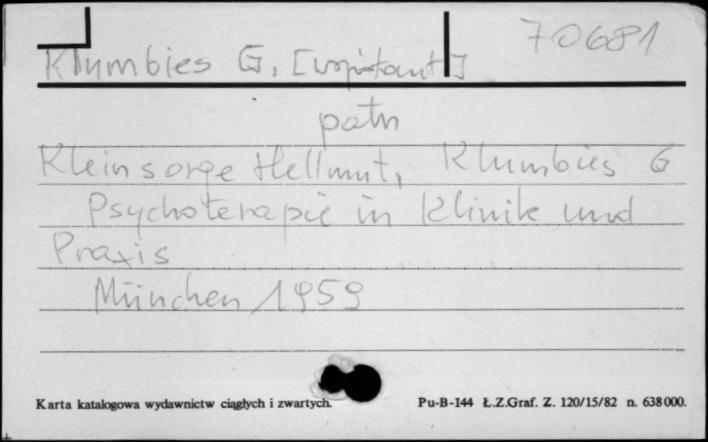 70681
Klumbies G, [współaut]
patrz
Kleinsorge Hellmut, Klumbies G
Psychoterapie in Klinik und
Praxis
München 1959
Karta katalogowa wydawnictw ciągłych i zwartych.
Pu-B-144 Ł.Z.Graf. Z. 120/15/82 n. 638000.